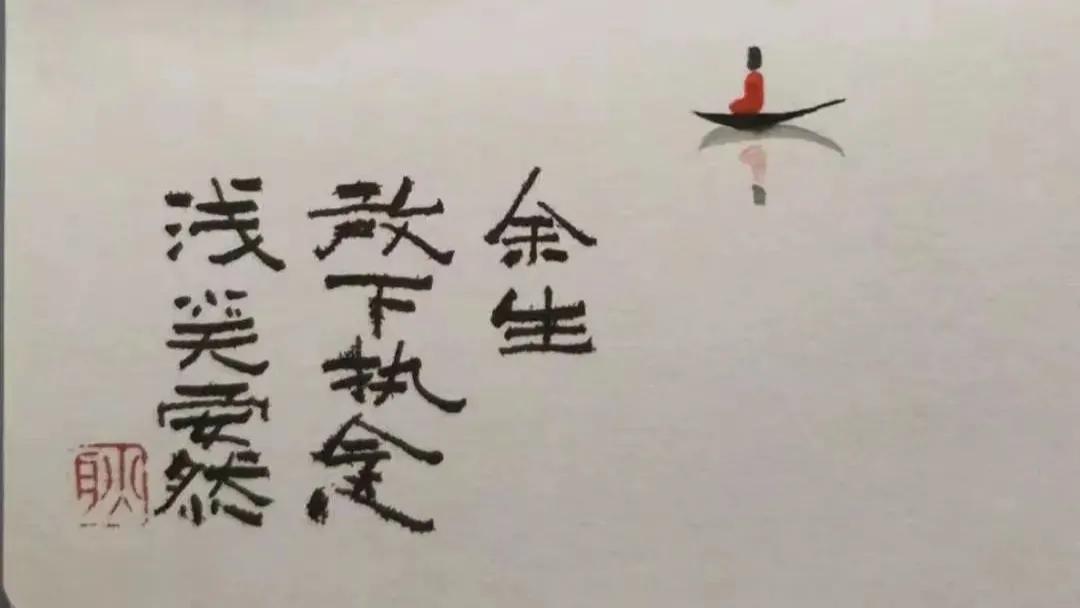 余生
放下执念
浅笑安然
耿